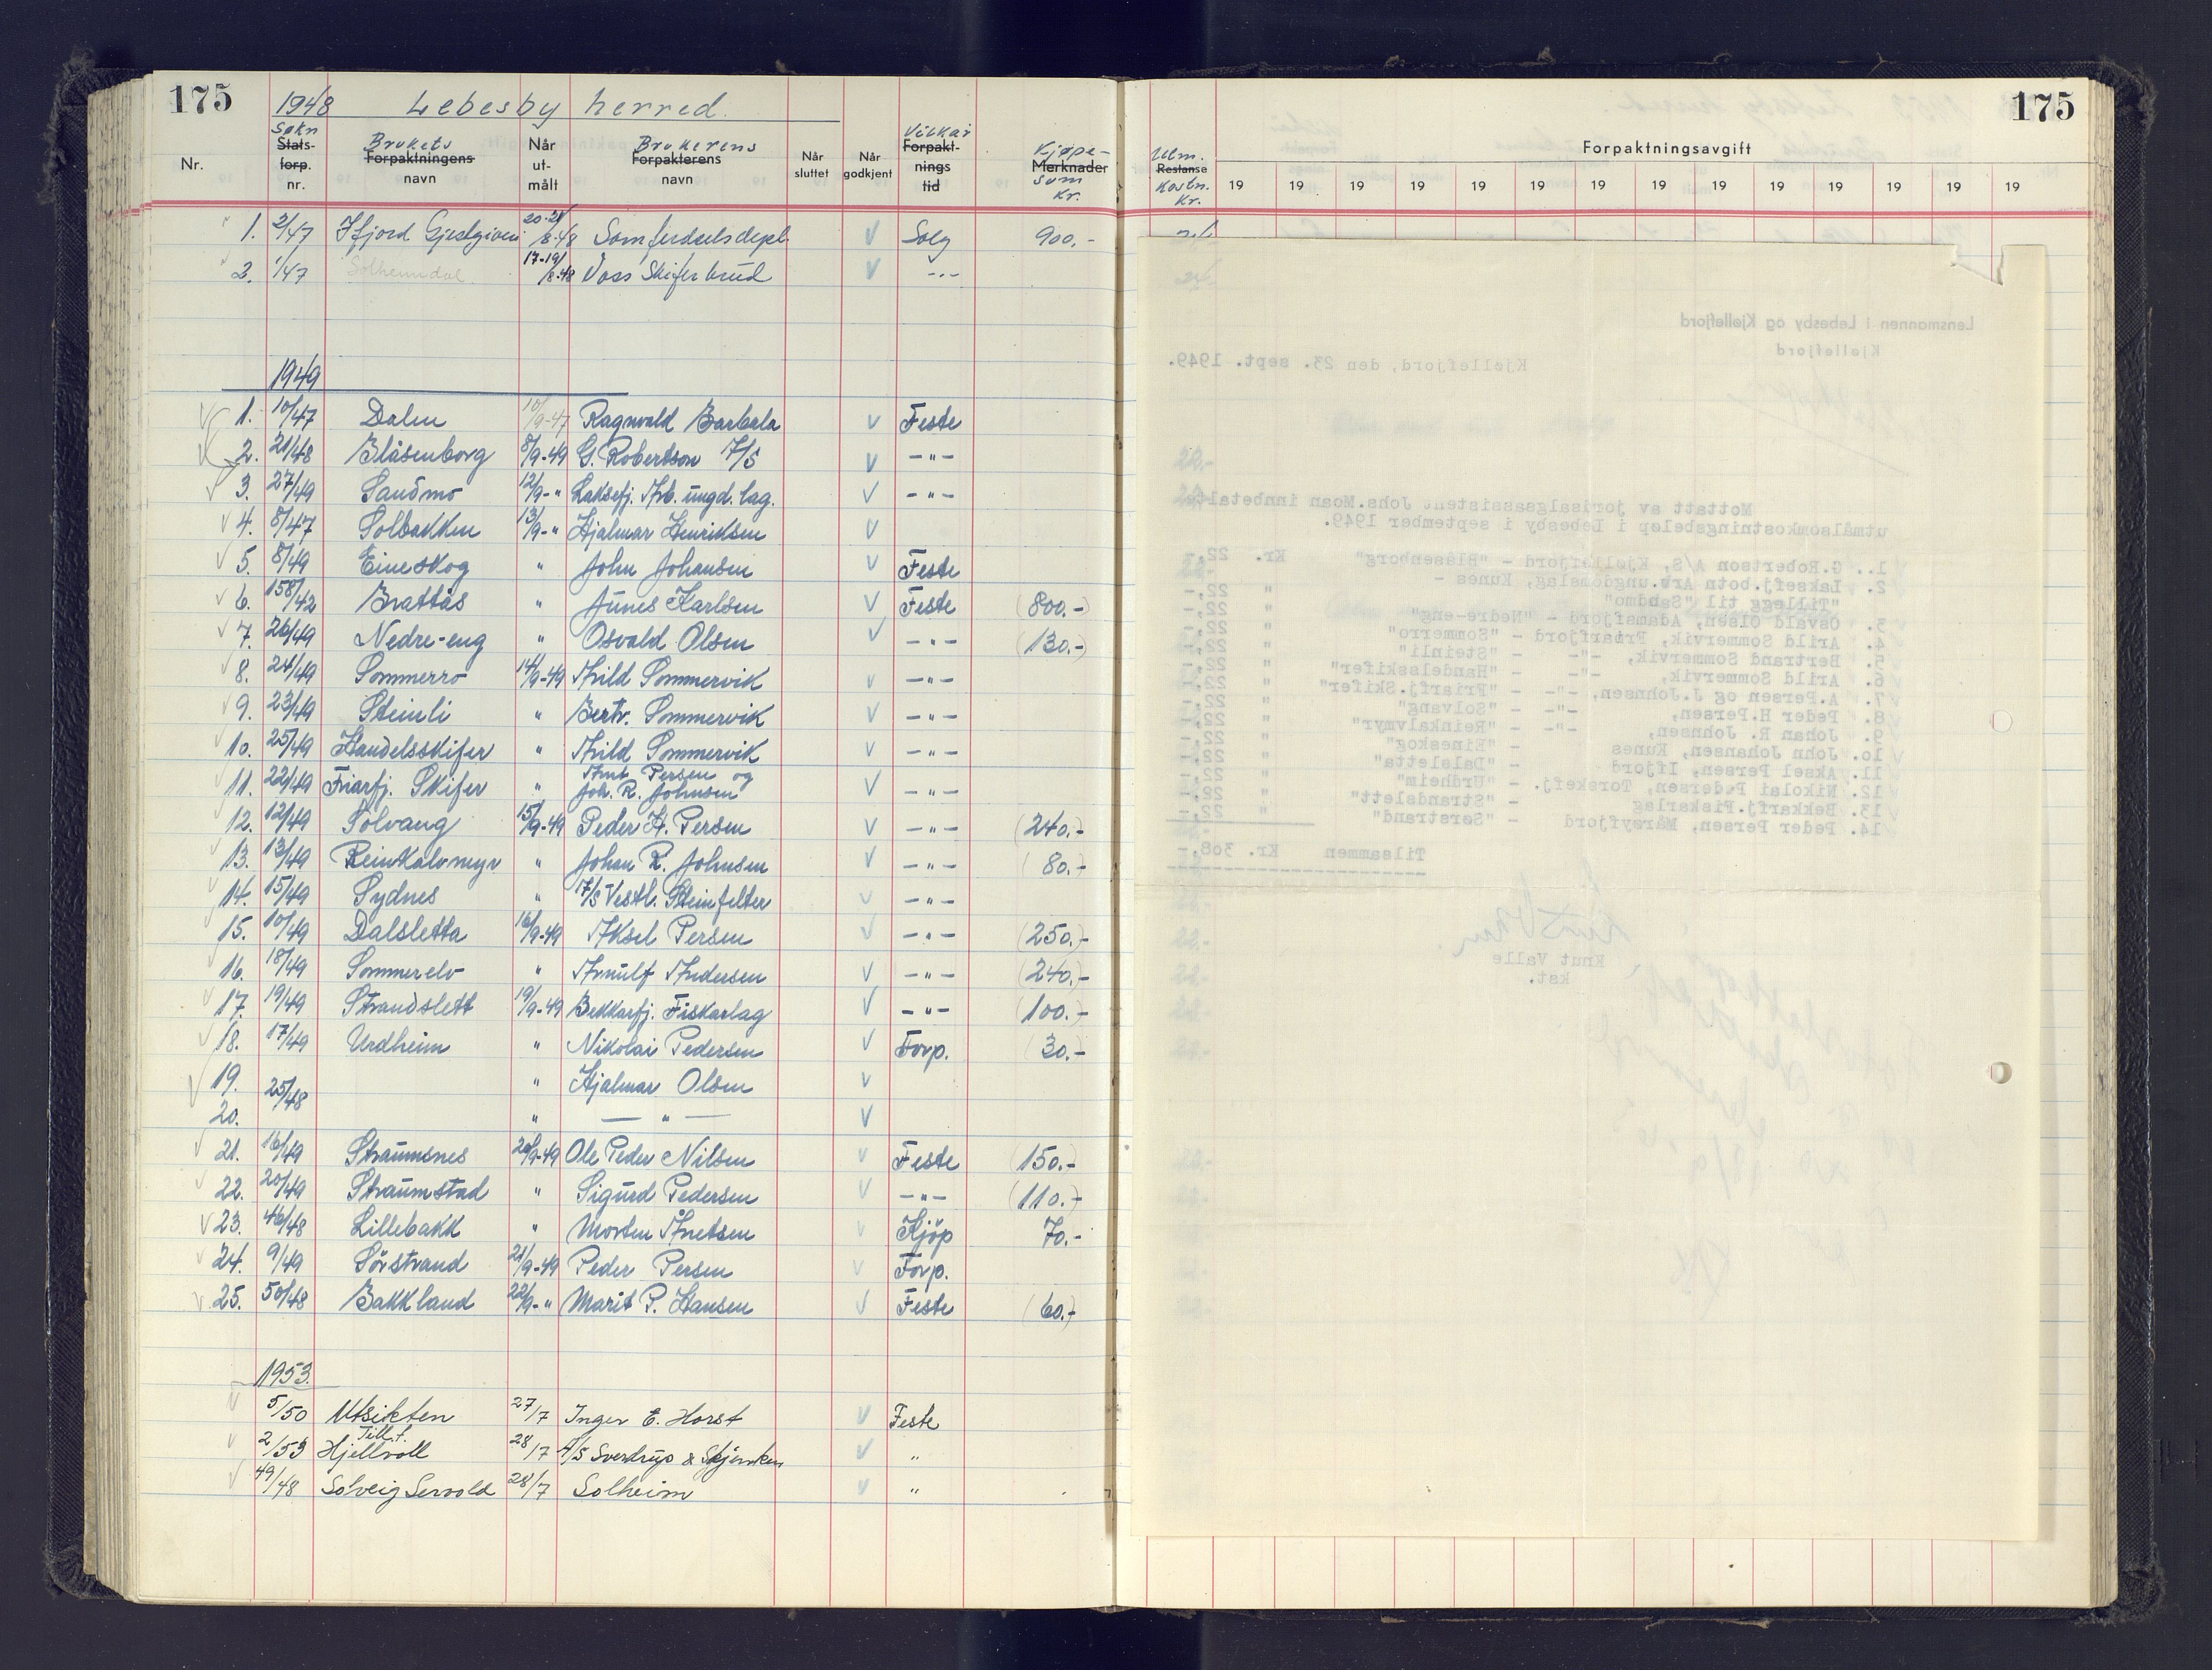 175
1948 Lebesby herred.
Nr. Søkn Stats-forp. nr. Brukets Forpaktningens navn Når ut-målt Brukerens Forpakterens navn Når sluttet Når godkjent Vilkår Forpakt-nings tid Kjøpe-sum kr. Merknader
1. 2/47 Ifjord Gjestgiveri 20-21/8-48 Samferdselsdept. V Salg 900.-
2. 1/47 Solheimdal 17-19/8-48 Voss Skiferbrud V -"-
1949
1. 10/47 Dalen 10/9-47 Ragnvald Barbala V Feste
2. 21/48 Blåsenborg 8/9-49 G. Robertson A/S V -"-
3. 27/49 Sandmo 12/9-" Laksefj. Arb. ungd. lag. V -"-
4. 8/47 Solbakken 13/9-" Hjalmar Henriksen V
5. 8/49 Eineskog " John Johansen V Feste
6. 158/42 Brattås " Junes Karlsen V Feste (800.-)
7. 26/49 Nedre-eng " Osvald Olsen V -"- (130.-)
8. 24/49 Sommerro 14/9-49 Arild Sommervik V -"-
9. 23/49 Steinli " Bertr. Sommervik V -"-
10. 25/49 Handelsskifer " Arild Sommervik V -"-
11. 22/49 Friarfj. Skifer " Ant. Persen og Joh. R. Johnsen V -"-
12. 12/49 Solvang 15/9-49 Peder H. Persen V -"- (240.-)
13. 13/49 Reinkalvmyr " Johan R. Johnsen V -"- (80.-)
14. 15/49 Sydnes " A/S Vestl. Steinfelter V -"-
15. 10/49 Dalsletta 16/9-49 Aksel Persen V -"- (250.-)
16. 18/49 Sommerelv " Arnulf Andersen V -"- (240.-)
17. 19/49 Strandslett 19/9-49 Bekkarfj. Fiskarlag V -"- (100.-)
18. 17/49 Urdheim " Nikolai Pedersen V Forp. (30.-)
19. 25/48 " Hjalmar Olsen V
20. " — " — V
21. 16/49 Straumsnes 20/9-49 Ole Peder Nilsen V Feste (150.-)
22. 20/49 Straumstad " Sigurd Pedersen V -"- (110.-)
23. 46/48 Lillebakk " Morten Anetsen V Kjöp 70.-
24. 9/49 Sörstrand 21/9-49 Peder Persen V Forp.
25. 50/48 Bakkland 22/9-" Marit P. Hansen V Feste (60.-)
1953.
5/50 Utsikten 27/7 Inger E. Horst V Feste
2/53 Till.t. Hjellvoll 28/7 A/S Sverdrup & V "
49/48 Solveig Servold 28/7 Solheim V "
175
Utm. kostn. kr. Restanse Forpaktningsavgift
19 19 19 19 19 19 19 19 19 19 19 19 19 19
Lensmannen i Lebesby og Kjøllefjord
Kjøllefjord
Kjøllefjord, den 23. sept. 1949.
Mottatt av jordsalgsassistent Johs.Moan innbetalte
utmålsomkostningsbeløp i Lebesby i september 1949.
1. G.Robertson A/S, Kjøllefjord - "Blåsenborg" Kr. 22,-
2. Laksefj.botn Arb.ungdomslag, Kunes -
"Tillegg til "Sandmo" " 22,-
3. Osvald Olsen, Adamsfjord - "Nedre-eng" " 22,-
4. Arild Sommervik, Friarfjord - "Sommerro" " 22,-
5. Bertrand Sommervik, -"- - "Steinli" " 22,-
6. Arild Sommervik, -"- - "Handelsskifer" " 22,-
7. A.Persen og J.Johnsen, -"- - "Friarfj.Skifer" " 22,-
8. Peder H.Persen, -"- - "Solvang" " 22,-
9. Johan R. Johnsen, -"- - "Reinkalvmyr" " 22,-
10. John Johansen, Kunes - "Eineskog" " 22,-
11. Aksel Persen, Ifjord - "Dalsletta" " 22,-
12. Nikolai Pedersen, Torskefj. - "Urdheim" " 22,-
13. Bekkarfj.Fiskarlag - "Strandslett" " 22,-
14. Peder Persen, Mårøyfjord - "Sørstrand" " 22,-
Tilsammen Kr. 308,-
Knut Valle
kst.